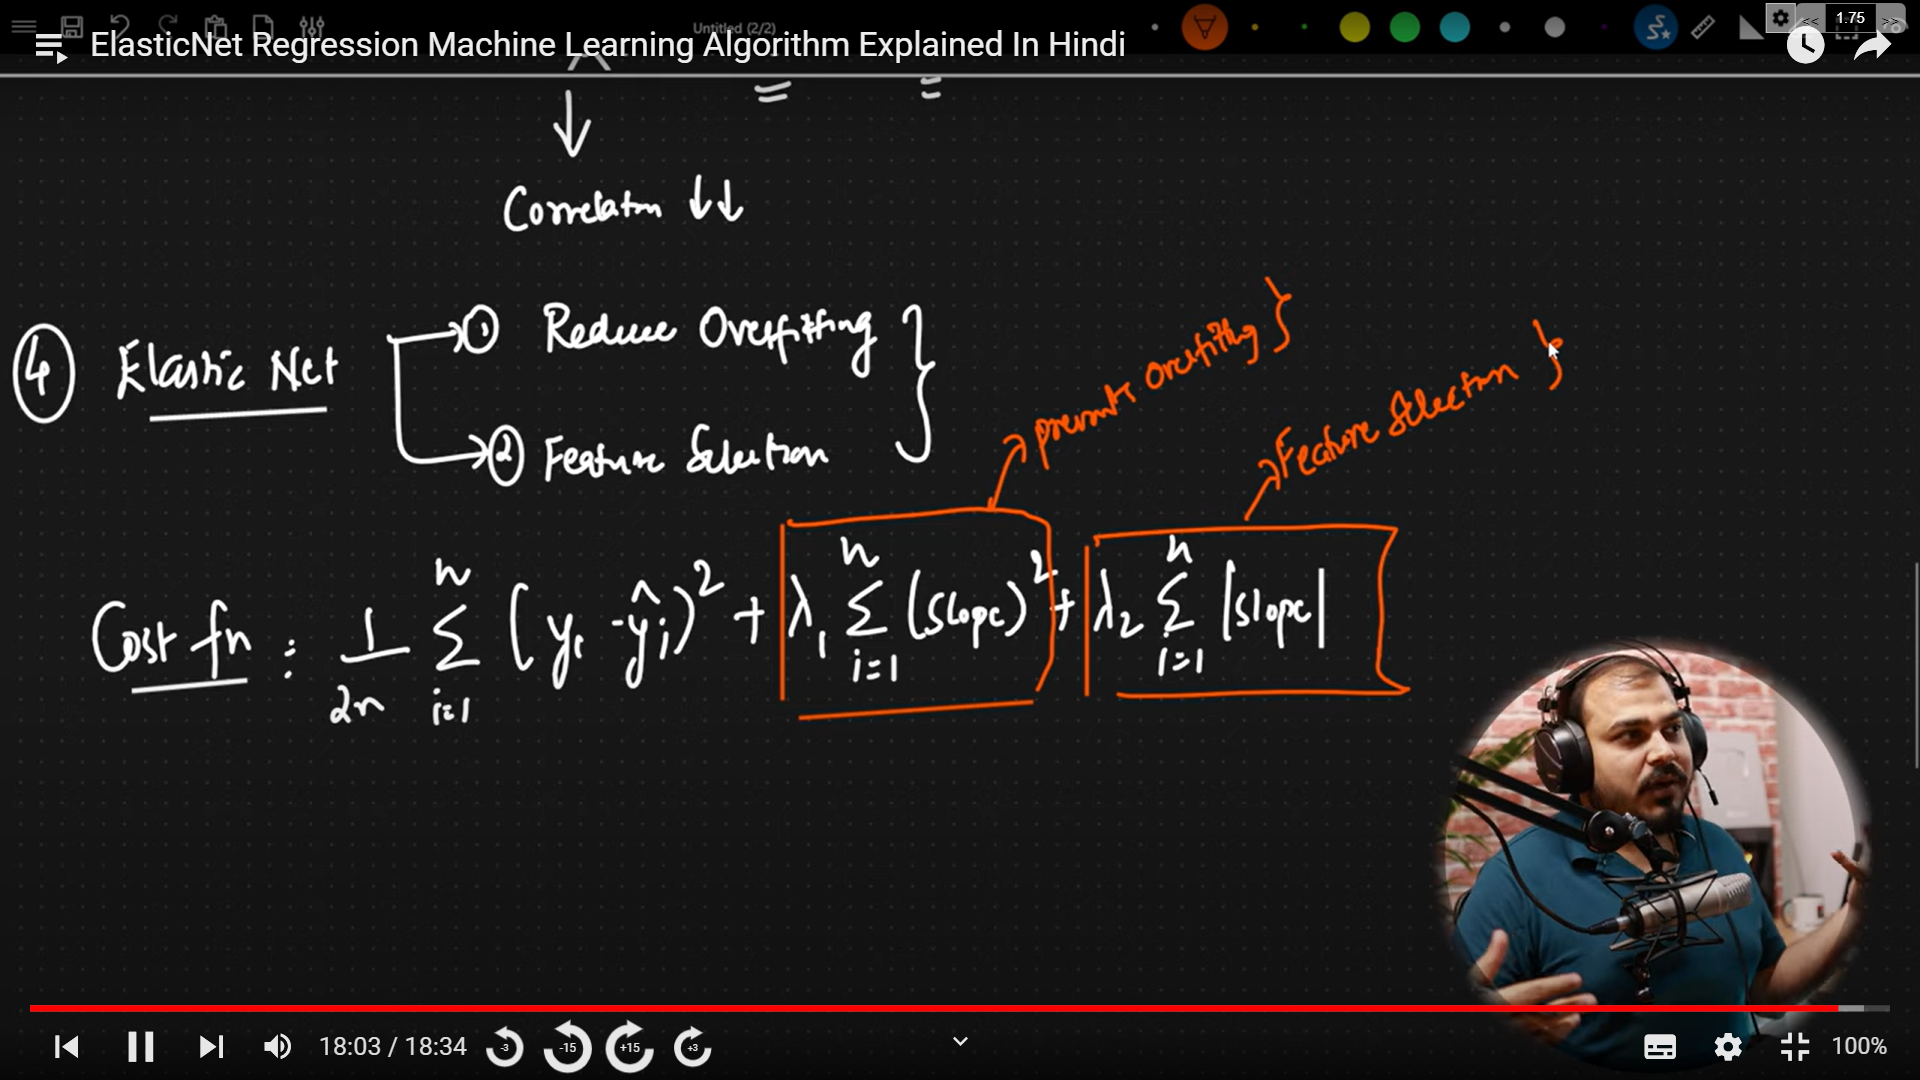 Untitled (2/2)
1.75
ElasticNet Regression Machine Learning Algorithm Explained In Hindi
Correlatn ↓↓
④ Elastic Net
① Reduce Overfitting
② Feature Selection
prevents overfitting }
Feature Selection }
Cost fn : 1/2n n Σ i=1 (yi - ŷi)² + λ1 n Σ i=1 (slope)² + λ2 n Σ i=1 |slope|
18:03 / 18:34
-3
-15
+15
+3
100%